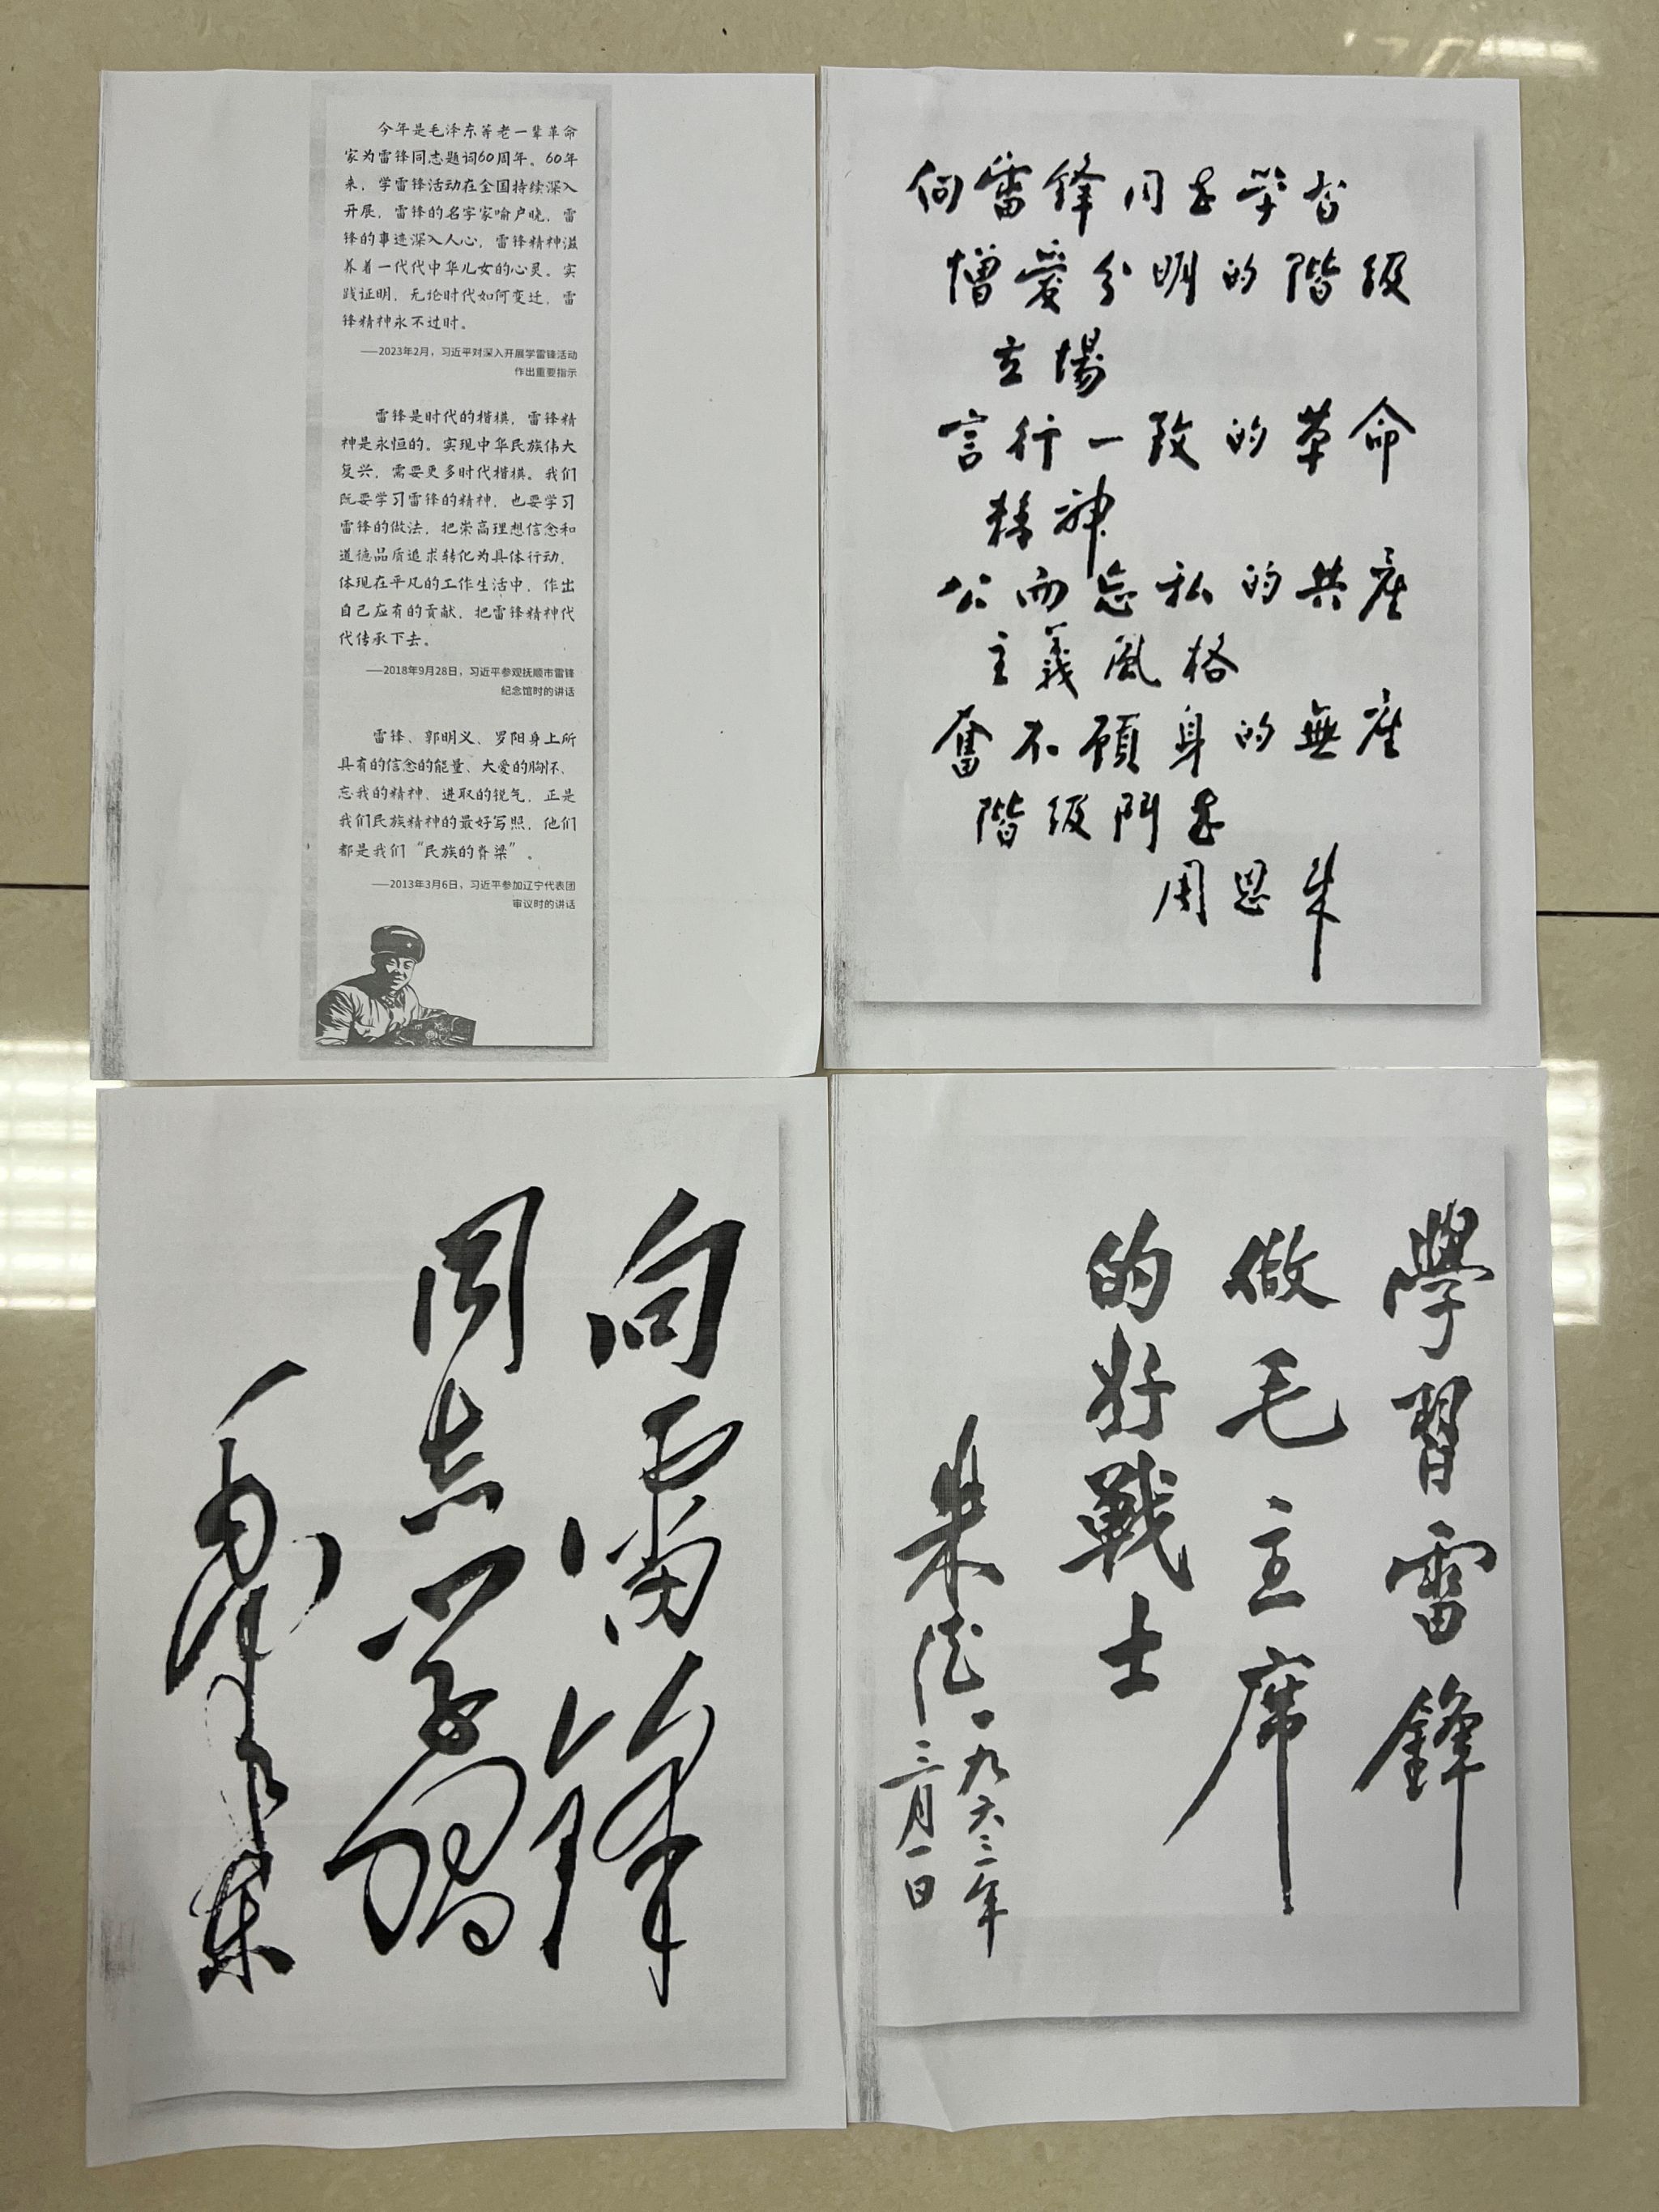 今年是毛泽东等老一辈革命
家为雷锋同志题词60周年。60年
来，学雷锋活动在全国持续深入
开展，雷锋的名字家喻户晓，雷
锋的事迹深入人心，雷锋精神滋
养着一代代中华儿女的心灵。实
践证明，无论时代如何变迁，雷
锋精神永不过时。
——2023年2月，习近平对深入开展学雷锋活动
作出重要指示
雷锋是时代的楷模，雷锋精
神是永恒的。实现中华民族伟大
复兴，需要更多时代楷模。我们
既要学习雷锋的精神，也要学习
雷锋的做法，把崇高理想信念和
道德品质追求转化为具体行动，
体现在平凡的工作生活中，作出
自己应有的贡献，把雷锋精神代
代传承下去。
——2018年9月28日，习近平参观抚顺市雷锋
纪念馆时的讲话
雷锋、郭明义、罗阳身上所
具有的信念的能量、大爱的胸怀、
忘我的精神、进取的锐气，正是
我们民族精神的最好写照，他们
都是我们“民族的脊梁”。
——2013年3月6日，习近平参加辽宁代表团
审议时的讲话
向雷锋同志学习
憎爱分明的階级
立場
言行一致的革命
精神
公而忘私的共产
主義風格
奮不顧身的無产
階级鬥志
周恩来
向雷锋
同志学习
毛泽东
學習雷鋒
做毛主席
的好戰士
朱德
一九六三年
三月一日